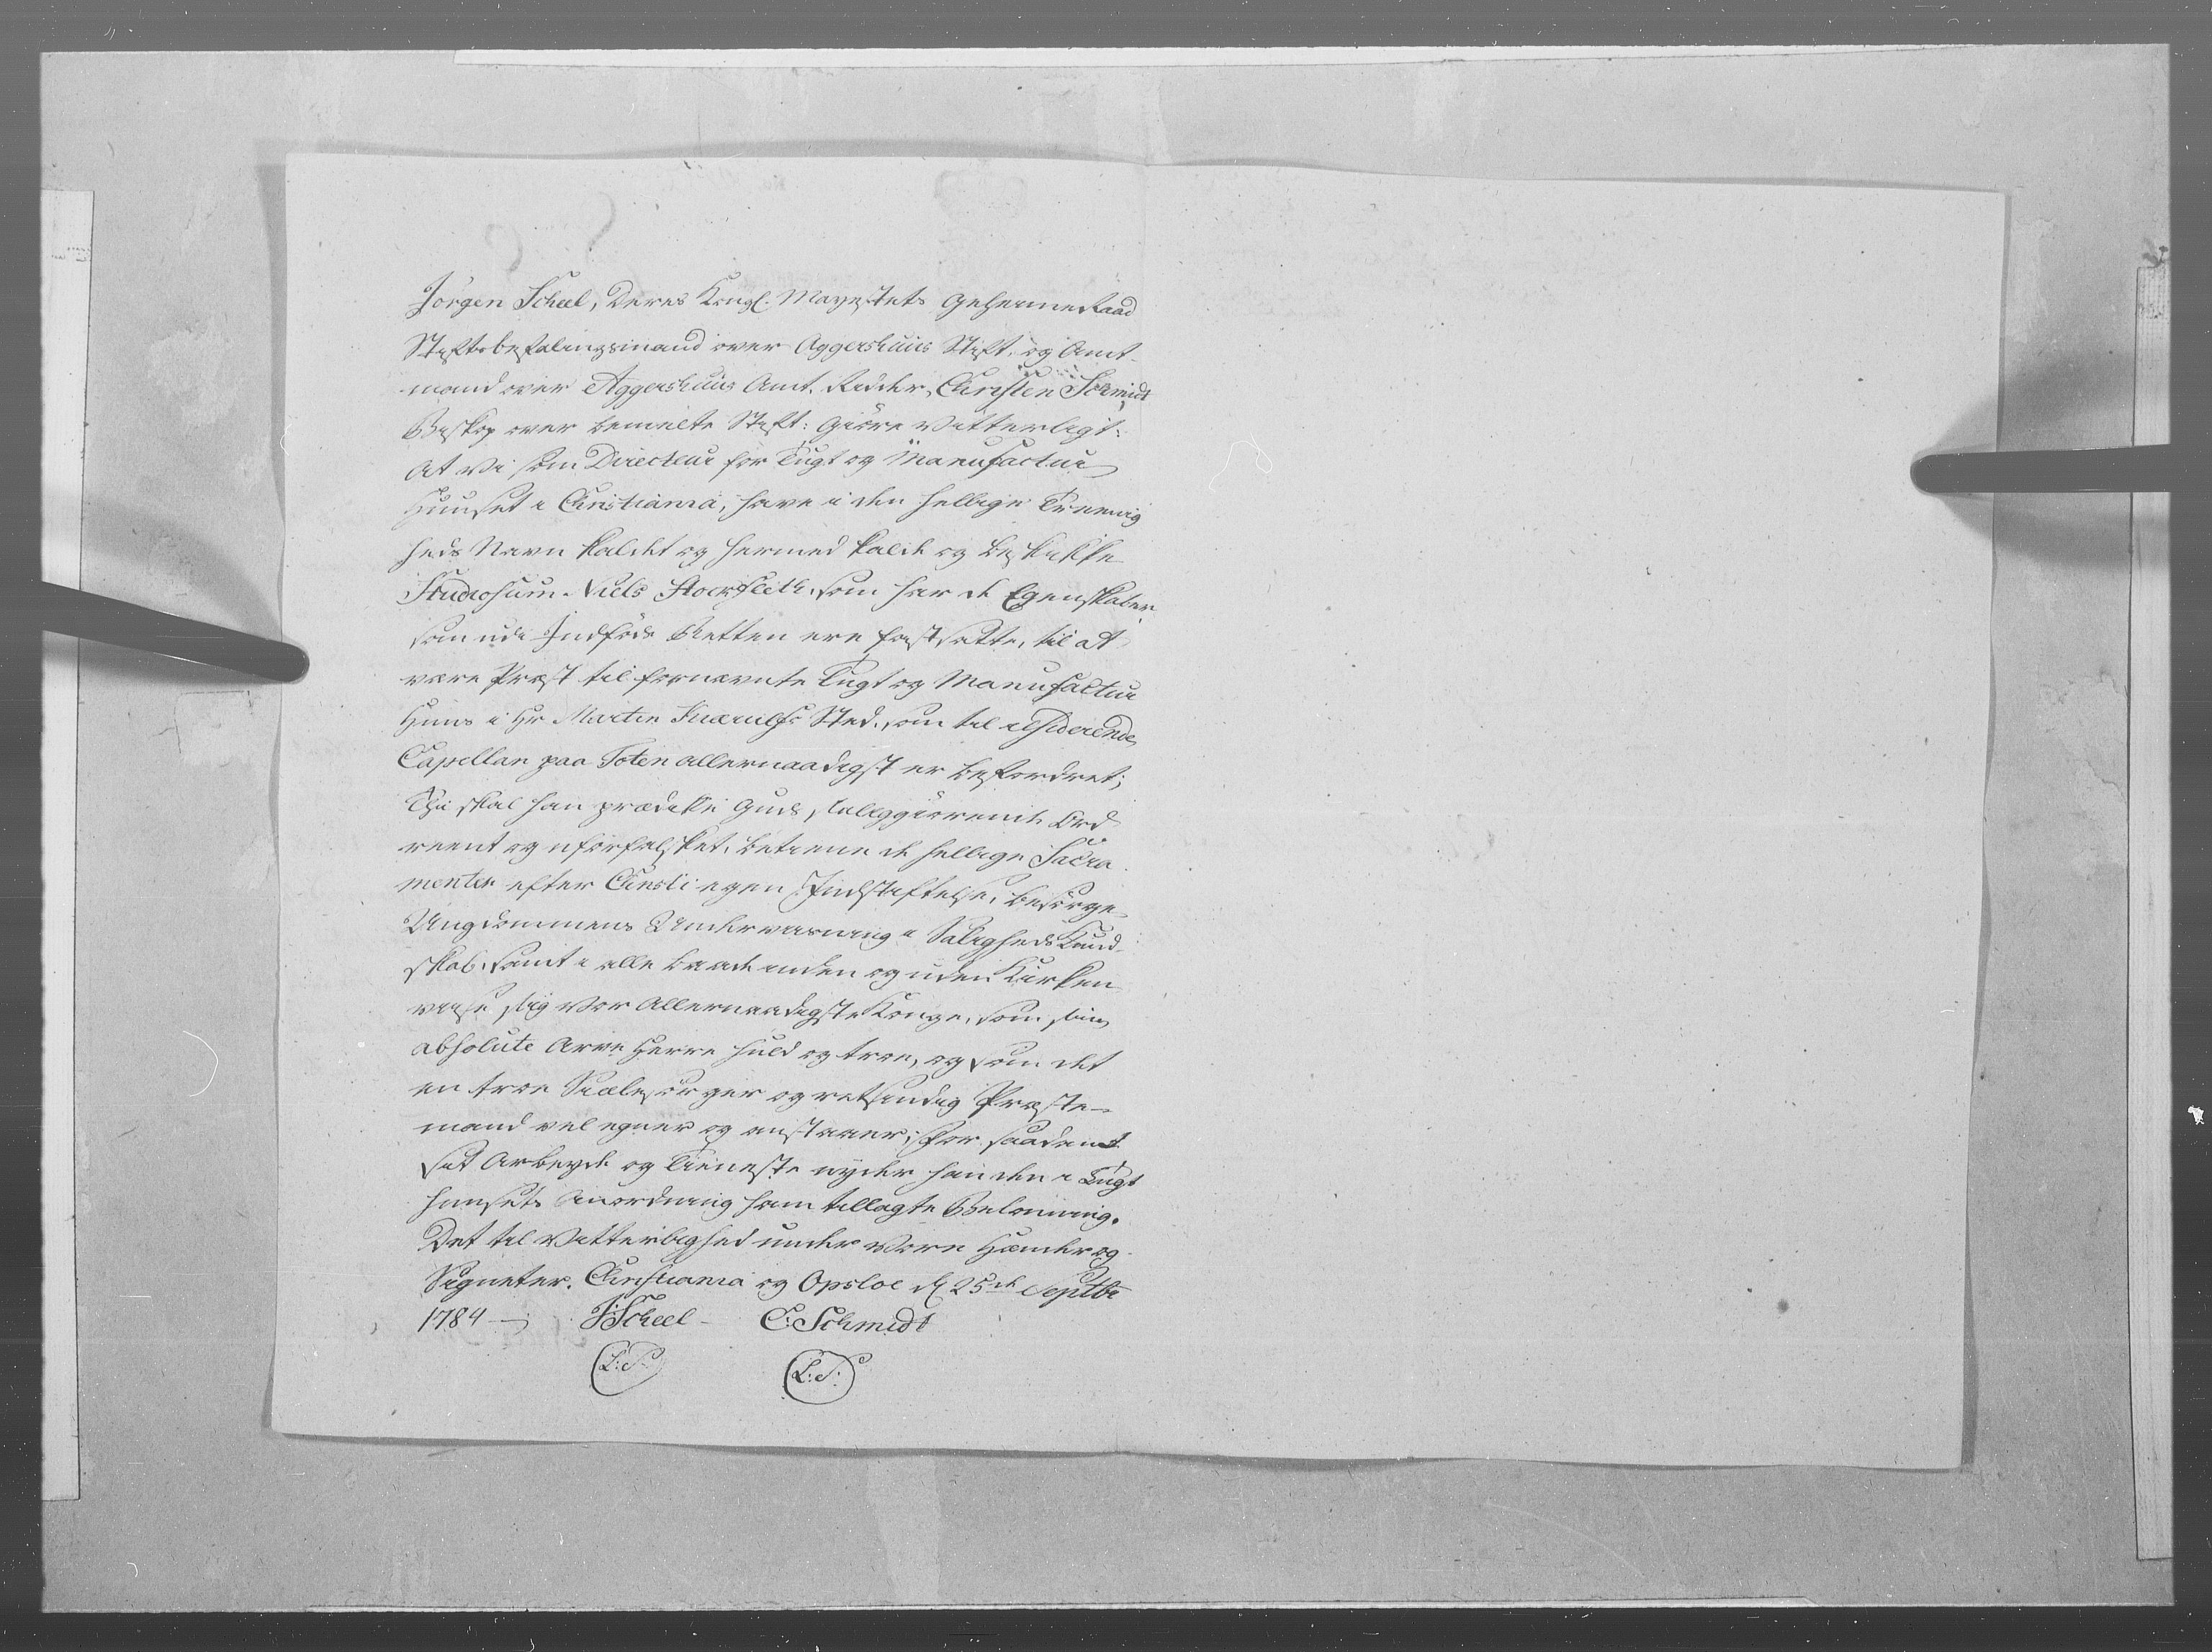 Jörgen Scheel, Deres Kongl. Mayestets GeheimeRaad
Stiftsbefalingsmand over Aggershuus Stift, og Amt-
mand over Aggershuus Amt, Ridder, Christen Schmidt
Biskop over bemelte Stift: Giöre vitterligt:
At vi som Directeur for Tugt og Manufactur
Huuset i Christiania, have i den hellige Treenig
heds Navn kaldet og hermed kalde og beskikke
Studiosum Niels Stockfleth, som har de Egenskaber
som udi Indföds Retten ere fastsatte, til at
være Præst til fornævnte Tugt og Manufactur
Huus i Hr Martin Sted, som til residerende
Capellan paa Toten allernaadigst er befordret;
Thi skal han prædike Guds saliggiörende Ord
reent og uforfalsket, betiene de hellige Sacra
menter efter Christi egen Indstiftelse, besörge
Ungdommens Underviisning i Saligheds Kund-
skab, samt i alle baade inden og uden Kirken
viise sig vor Allernaadigste Konge, som sin
absolute Arve Herre huld og troe, og som det
en troe Siælesörger og retsindig Præste-
mand vel egner og anstaaer; For saadant
sit Arbeyde og Tieneste nyder han den i Tugt
huusets Anordning ham tillagte Belönning.
Det til Vitterlighed under vore Hænder og
Signeter. Christiania og Opsloe d 25de Septbr
1784 - J Scheel - C: Schmidt
L:S: L:S: